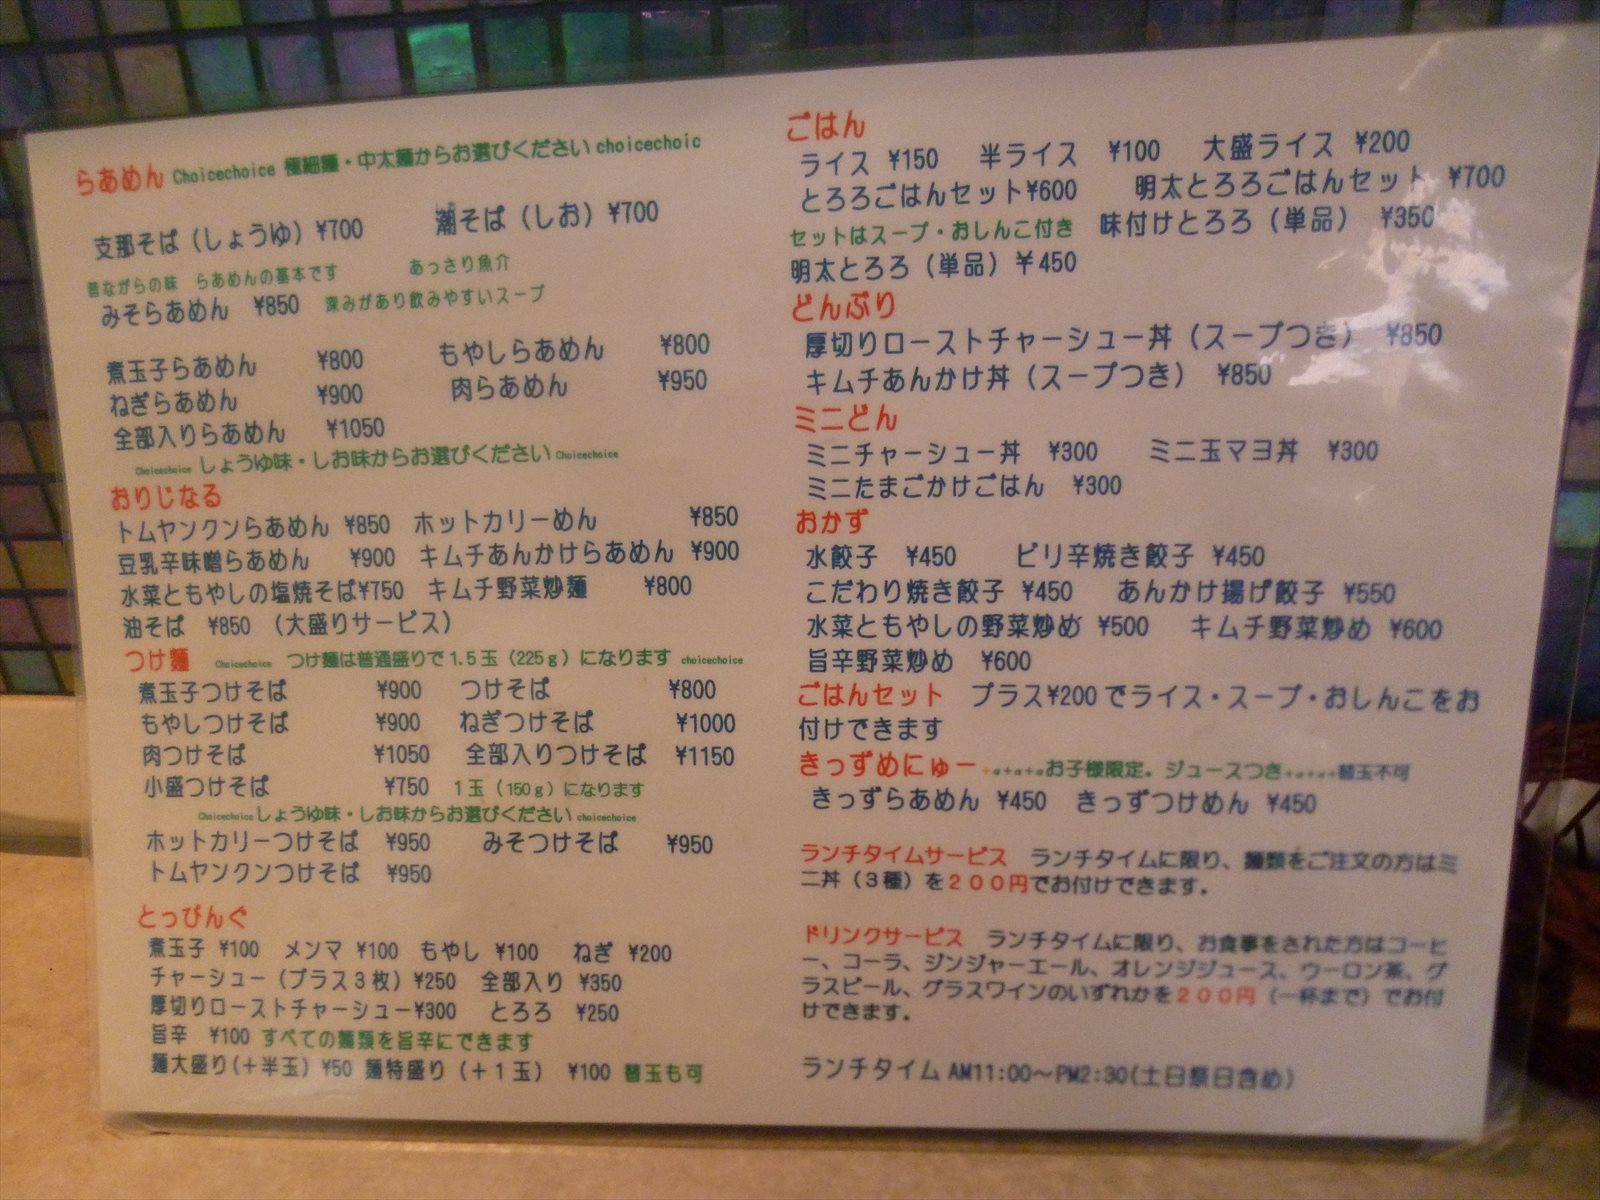 らあめん Choicechoice 極細麺・中太麺からお選びください choicechoic
支那そば（しょうゆ）¥700 潮そば（しお）¥700
昔ながらの味 らあめんの基本です あっさり魚介
みそらあめん ¥850 深みがあり飲みやすいスープ
煮玉子らあめん ¥800 もやしらあめん ¥800
ねぎらあめん ¥900 肉らあめん ¥950
全部入りらあめん ¥1050
Choicechoice しょうゆ味・しお味からお選びください Choicechoice
おりじなる
トムヤンクンらあめん ¥850 ホットカリーめん ¥850
豆乳辛味噌らあめん ¥900 キムチあんかけらあめん ¥900
水菜ともやしの塩焼そば¥750 キムチ野菜炒麺 ¥800
油そば ¥850 （大盛りサービス）
つけ麺 Choicechoice つけ麺は普通盛りで１.５玉（225ｇ）になります choicechoice
煮玉子つけそば ¥900 つけそば ¥800
もやしつけそば ¥900 ねぎつけそば ¥1000
肉つけそば ¥1050 全部入りつけそば ¥1150
小盛つけそば ¥750 １玉（150ｇ）になります
Choicechoice しょうゆ味・しお味からお選びください choicechoice
ホットカリーつけそば ¥950 みそつけそば ¥950
トムヤンクンつけそば ¥950
とっぴんぐ
煮玉子 ¥100 メンマ ¥100 もやし ¥100 ねぎ ¥200
チャーシュー（プラス３枚）¥250 全部入り ¥350
厚切りローストチャーシュー¥300 とろろ ¥250
旨辛 ¥100 すべての麺類を旨辛にできます
麺大盛り(＋半玉) ¥50 麺特盛り（＋１玉） ¥100 替玉も可
ごはん
ライス ¥150 半ライス ¥100 大盛ライス ¥200
とろろごはんセット¥600 明太とろろごはんセット ¥700
セットはスープ・おしんこ付き 味付けとろろ（単品） ¥350
明太とろろ（単品）￥450
どんぶり
厚切りローストチャーシュー丼（スープつき） ¥850
キムチあんかけ丼（スープつき） ¥850
ミニどん
ミニチャーシュー丼 ¥300 ミニ玉マヨ丼 ¥300
ミニたまごかけごはん ¥300
おかず
水餃子 ¥450 ピリ辛焼き餃子 ¥450
こだわり焼き餃子 ¥450 あんかけ揚げ餃子 ¥550
水菜ともやしの野菜炒め ¥500 キムチ野菜炒め ¥600
旨辛野菜炒め ¥600
ごはんセット プラス¥200でライス・スープ・おしんこをお
付けできます
きっずめにゅー +α+α+αお子様限定。ジュースつき+α+α+替玉不可
きっずらあめん ¥450 きっずつけめん ¥450
ランチタイムサービス ランチタイムに限り、麺類をご注文の方はミ
ニ丼（３種）を２００円でお付けできます。
ドリンクサービス ランチタイムに限り、お食事をされた方はコーヒ
ー、コーラ、ジンジャーエール、オレンジジュース、ウーロン茶、グ
ラスビール、グラスワインのいずれかを２００円（一杯まで）でお付
けできます。
ランチタイム AM11:00〜PM2:30(土日祭日含め）